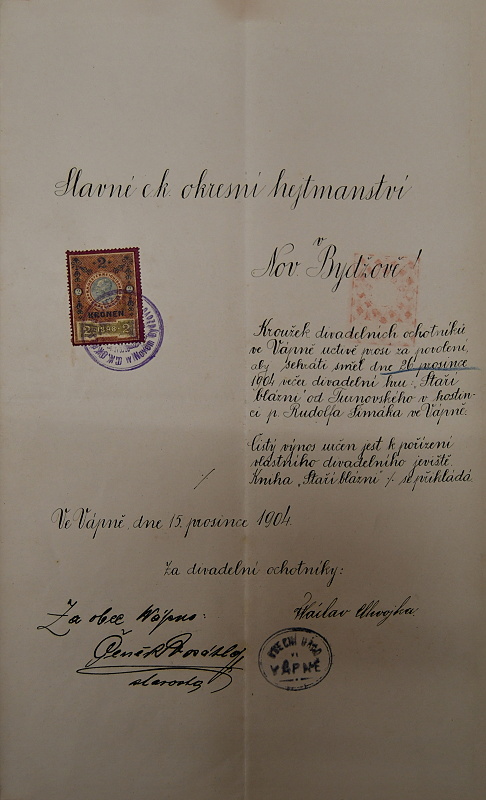 Slavné c.k. okresní hejtmanství
v
Nov. Bydžově!
2
KRONEN
2 1898 2
Kroužek divadelních ochotníků
ve Vápně uctivě prosí za povolení,
aby sehráti směl dne 26. prosince
1904 večer divadelní hru: „Staří
blázni" od Turnovského v hostin-
ci p. Rudolfa Šimáka ve Vápně.
Čistý výnos určen jest k pořízení
vlastního divadelního jeviště.
Kniha „Staří blázni" ·/· se přikládá.
·/·
Ve Vápně, dne 15. prosince 1904.
Za divadelní ochotníky:
Václav
Za obec Vápno:
Čeněk
starosta
OBECNÍ ÚŘAD
VÁPNĚ